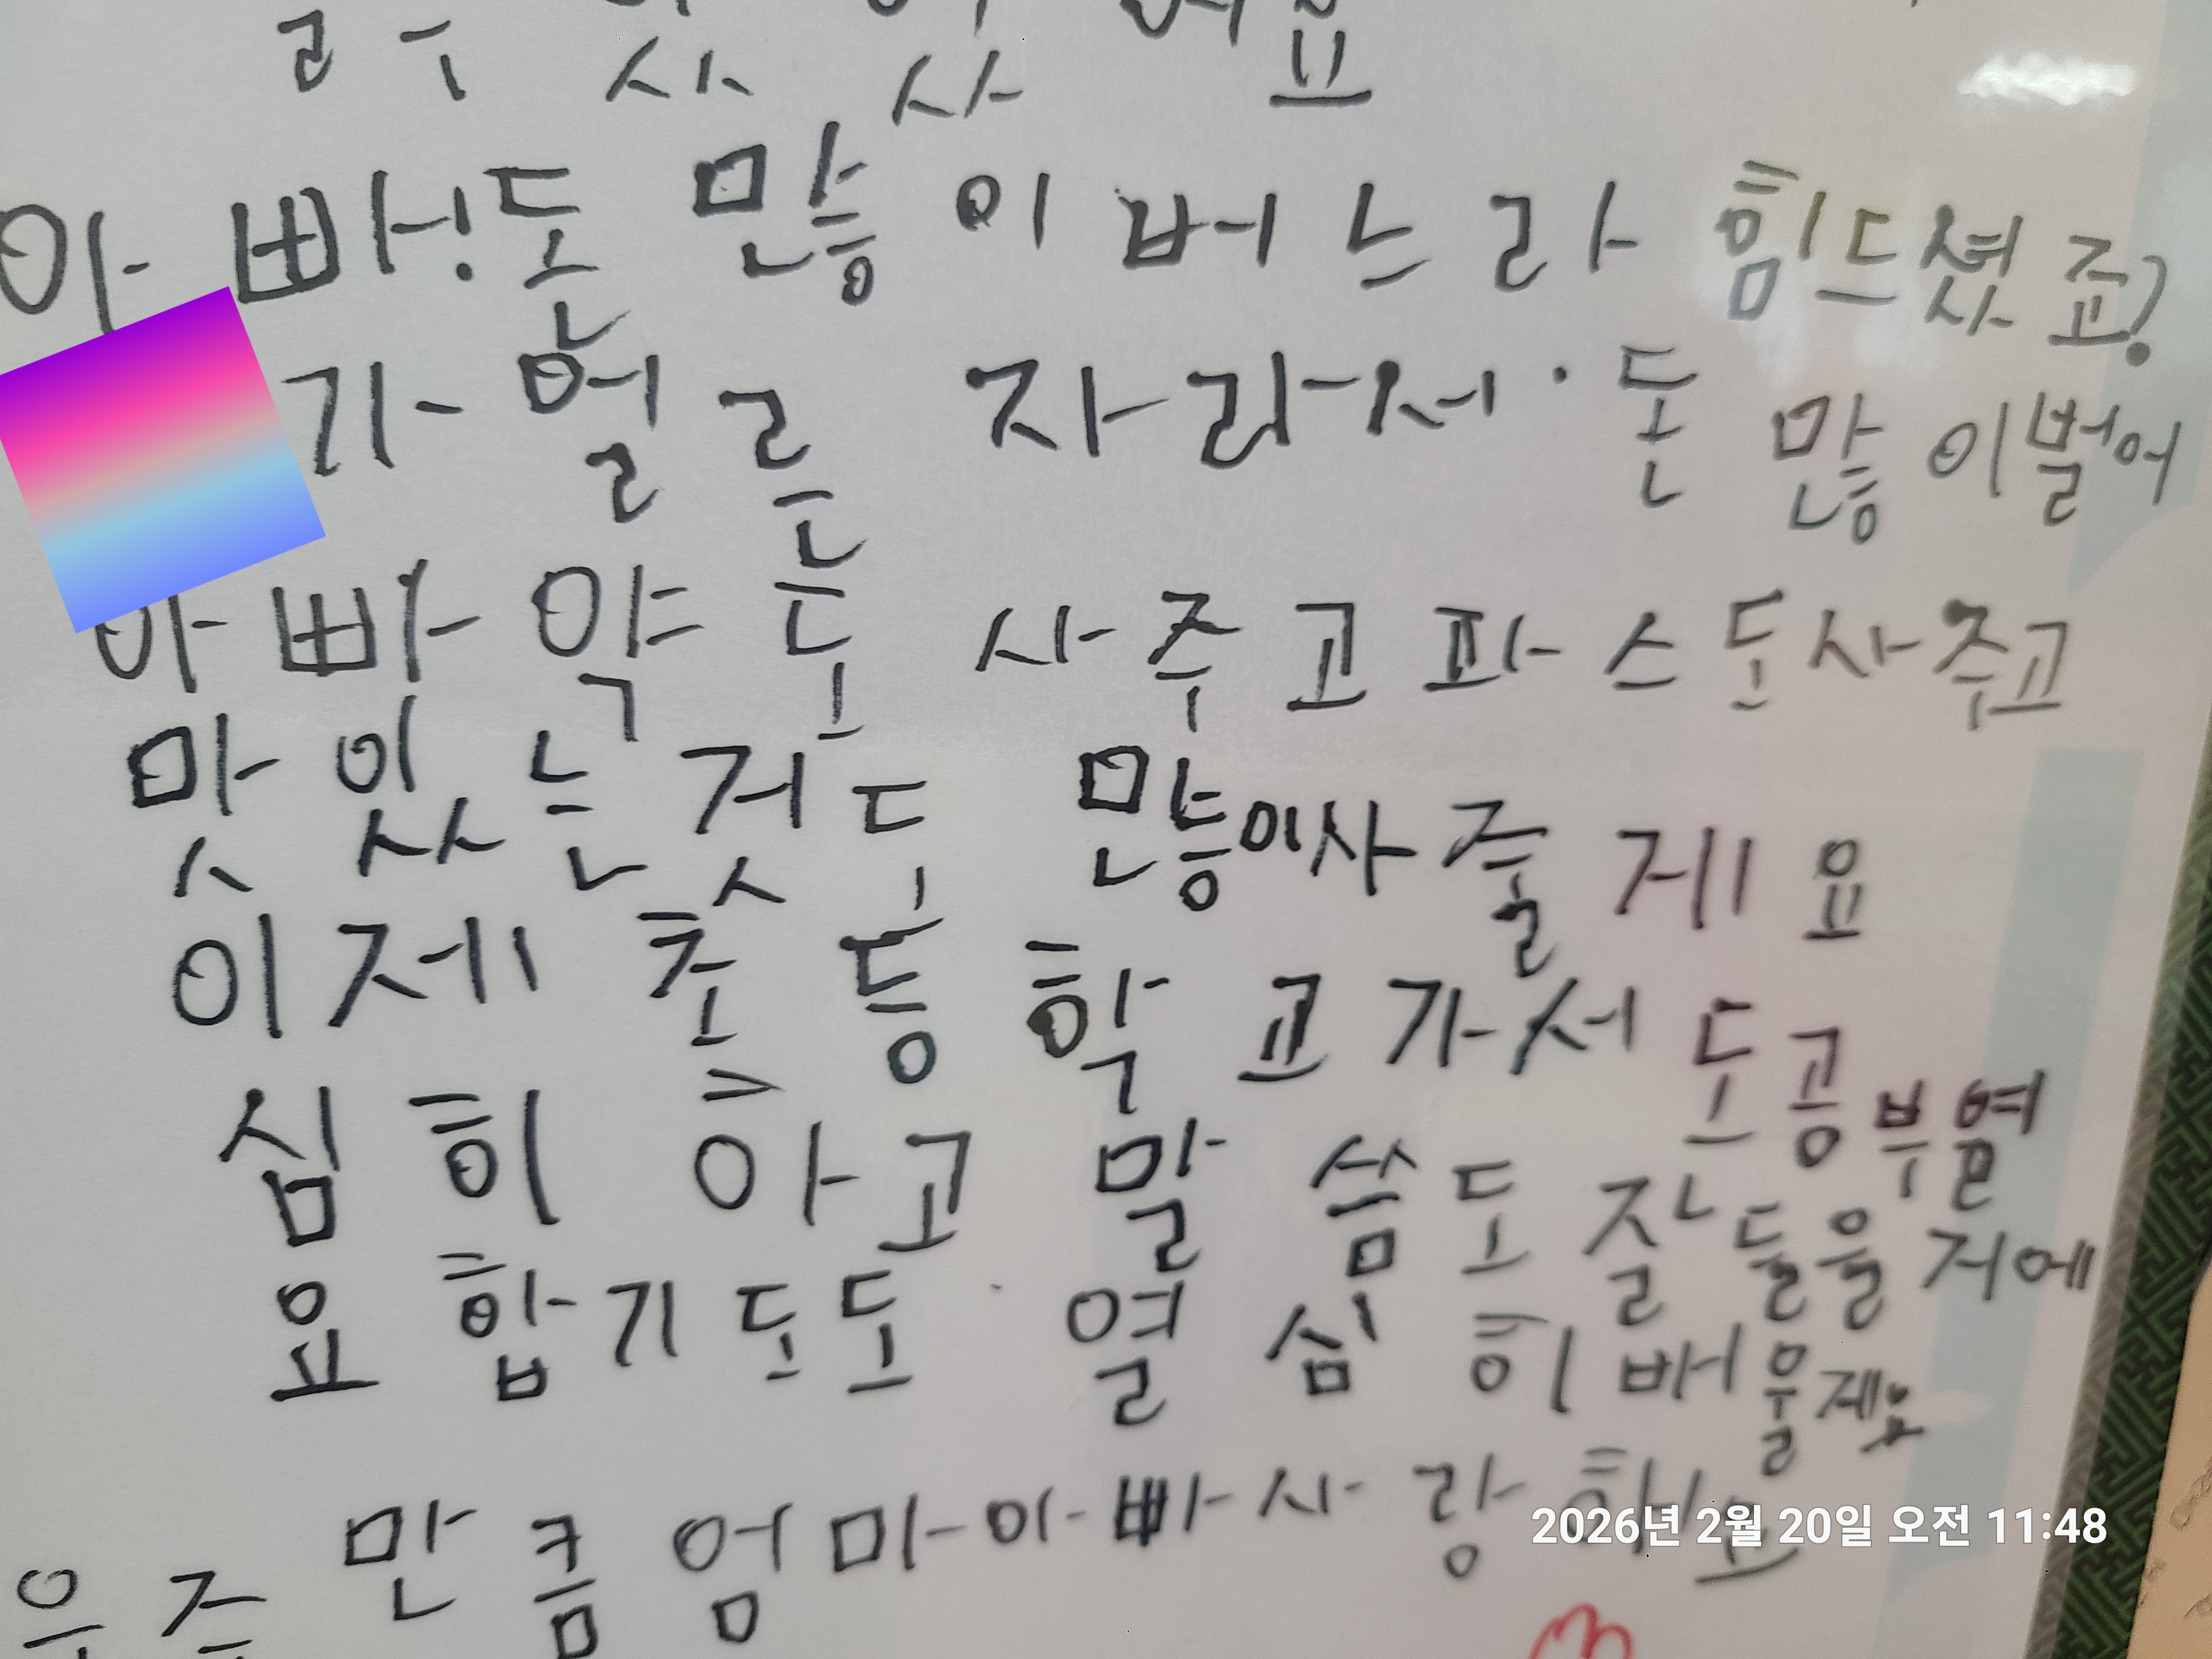 아빠! 돈 많이 버느라 힘드셨죠?
가 얼른 자라서 돈 많이 벌어
아빠 약도 사주고 파스도 사주고
맛있는 것도 많이 사줄게요
이제 초등학교 가서도 공부 열
심히 하고 말씀도 잘 들을 거에
요 합기도도 열심히 배울게요
우주만큼 엄마 아빠 사랑하고
2026년 2월 20일 오전 11:48